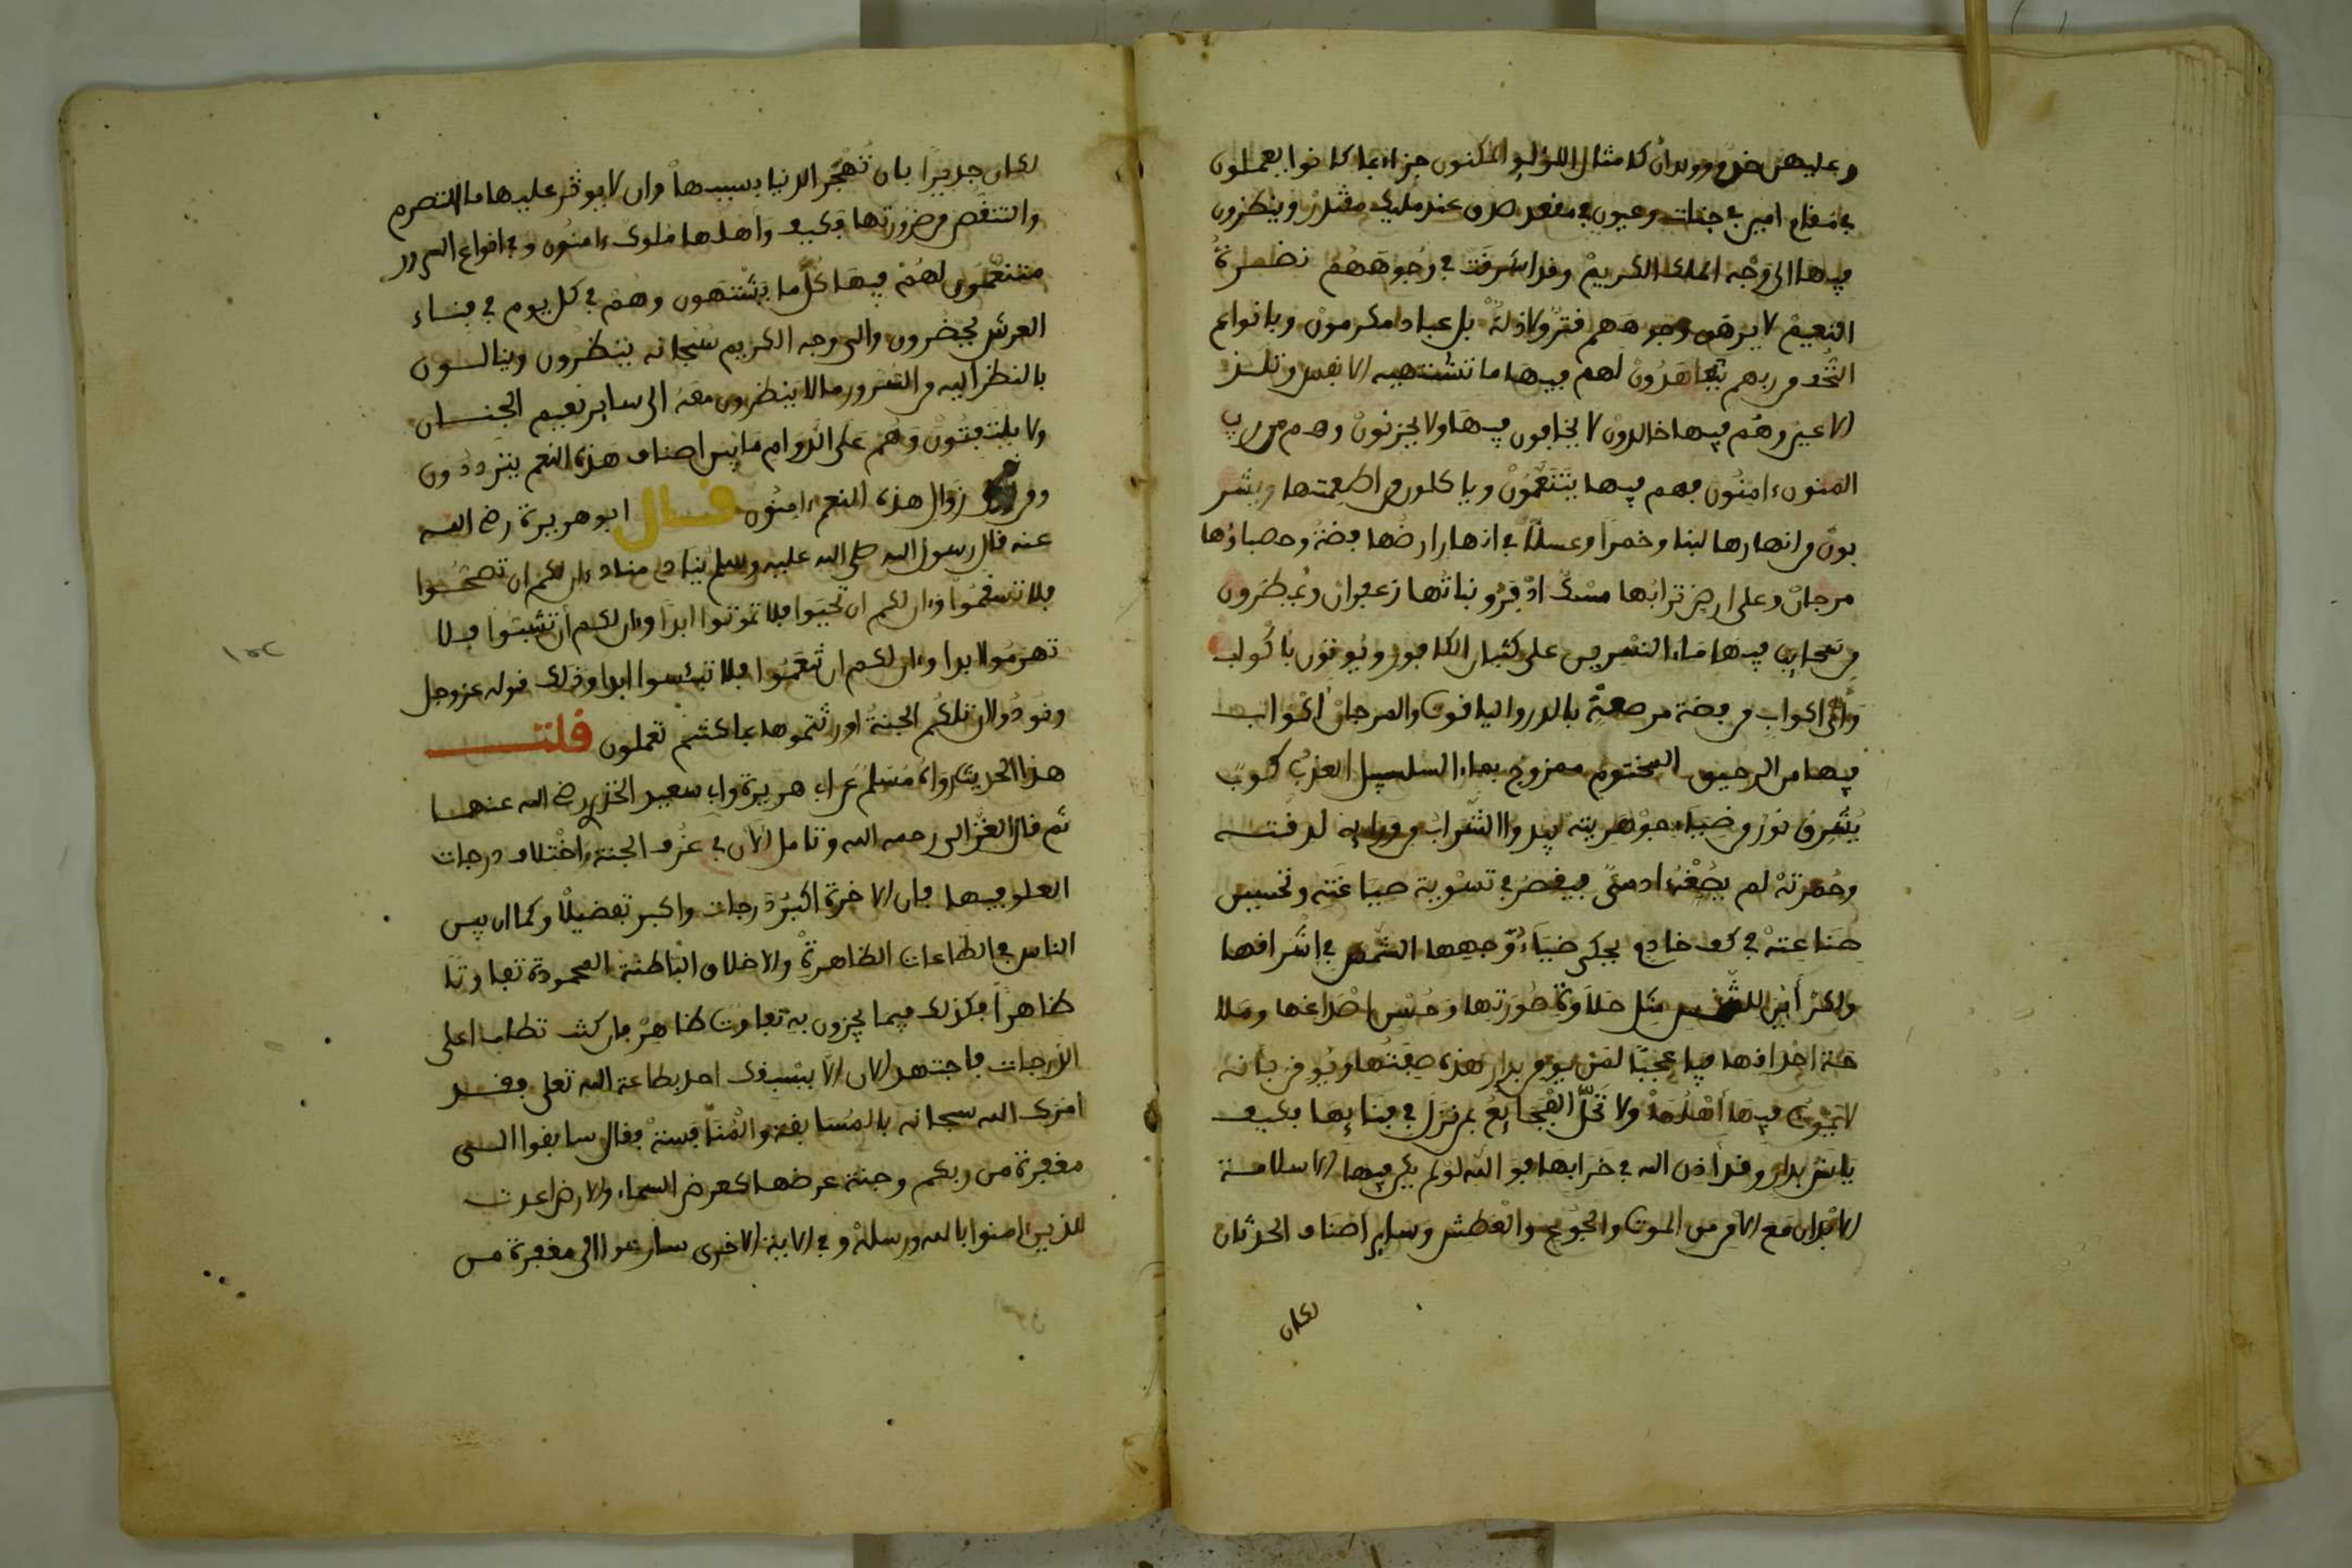 وعليهن خدم وولدان كامثال اللؤلؤ المكنون جزاء بما كانوا يعملون
في مقام امين في جنات وعيون في مقعد صدق عند مليك مقتدر وينظرون
فيها الى وجه الملك الكريم وقد اشرقت في وجوههم نضرة
النعيم لا يرهق وجوههم قتر ولا ذلة بل عباد مكرمون وبانواع
التحف من ربهم يتعاهدون لهم فيها ما تشتهيه الانفس وتلذ
الاعين وهم فيها خالدون لا يخافون فيها ولا يحزنون وهم من ريب
المنون ءامنون فهم فيها يتنعمون وياكلون من اطعمتها ويشر
بون من انهارها لبنا وخمرا وعسلا في انهار ارضها فضة وحصباؤها
مرجان وعلى ارض ترابها مسك اذفر ونباتها زعفران ويمطرون
من سحاب فيها ماء النسرين على كثبان الكافور ويوتون باكواب
واي اكواب من فضة مرصعة بالدر والياقوت والمرجان اكواب
فيها من الرحيق المختوم ممزوج بماء السلسبيل العذب كوب
يشرق نوره من ضياء جوهريته يبدوا الشراب من ورايه لرقته
وحمرته لم يصغه ادمي فيقصر في تسوية صياغته وتحسين
صناعته في كف خادم يحكي ضياء وجهها الشمس في اشراقها
ولكن أين للشمس مثل حلاوة صورتها وحسن اصداغها وملا
حة احداقها فيا عجبا لمن يومن بدار هذه صفتها ويوقن بانه
لا يموت فيها أهلها ولا تحل الفجايع بمن نزل في فنايها فكيف
يانس بدار وقد أذن الله في خرابها فو الله لو لم يكن فيها الا سلامة
الابدان مع الامن من الموت والجوع والعطش وساير اصناف الحدثان
لكان
لكان جديرا بان تهجر الدنيا بسببها وان لا يوثر عليها ما التصرم
والتنغص من ضرورتها فكيف واهلها ملوك ءامنون وفي انواع السرور
متنعمون لهم فيها كل ما يشتهون وهم في كل يوم في فناء
العرش يحضرون والى وجه الكريم سبحانه ينظرون وينالون
بالنظر اليه من السرور ما لا ينظرون معه الى ساير نعيم الجنان
ولا يلتفتون وهم على الدوام ما بين اصناف هذه النعم يترددون
ومن زوال هذه النعم ءامنون قال ابو هريرة رضي الله
عنه قال رسول الله صلى الله عليه وسلم ينادي مناد ان لكم ان تصحوا
فلا تسقموا وان لكم ان تحيوا فلا تموتوا ابدا وان لكم أن تشبوا فلا
تهرموا ابدا وان لكم ان تنعموا فلا تبئسوا ابدا وذلك قوله عز وجل
ونودوا ان تلكم الجنة اورثتموها بما كنتم تعملون قلت
هذا الحديث رواه مسلم عن ابي هريرة وابي سعيد الخدري رضي الله عنهما
ثم قال الغزالي رحمه الله وتامل الآن في غرف الجنة واختلاف درجات
العلو فيها فان الاخرة اكبر درجات واكبر تفضيلا وكما ان بين
الناس في الطاعات الظاهرة والاخلاق الباطنة المحمودة تفاوتا
ظاهرا فكذلك فيما يجزون به تفاوت ظاهر فان كنت تطلب اعلى
الدرجات فاجتهد الان الا يسبقك احد بطاعة الله تعلى فقد
امرك الله سبحانه بالمسابقة والمنافسة فقال سابقوا الى
مغفرة من ربكم وجنة عرضها كعرض السماء والارض اعدت
للذين ءامنوا بالله ورسله وفي الاية الاخرى سارعوا الى مغفرة من